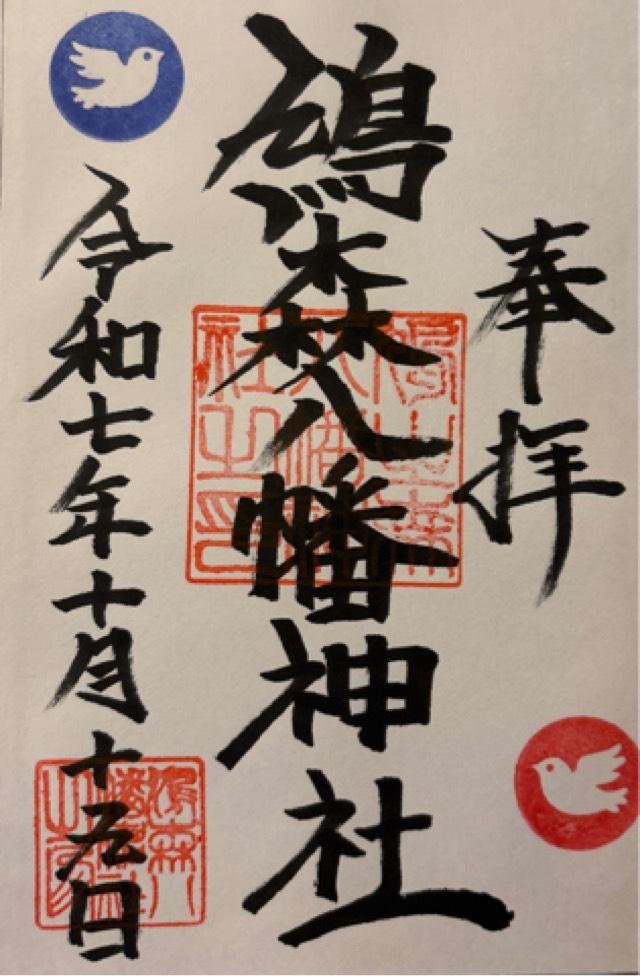 奉拝
鳩森八幡神社
令和七年十月十五日